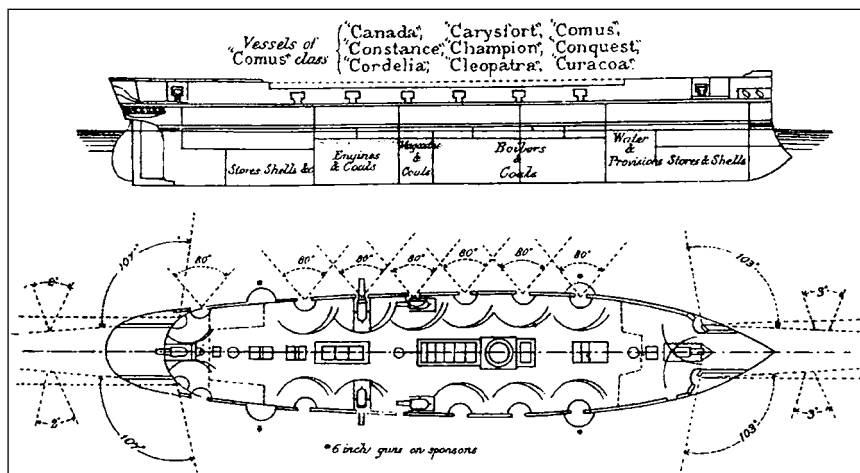 Vessels of
"Comus" class
"Canada", "Carysfort", "Comus",
"Constance", "Champion", "Conquest",
"Cordelia", "Cleopatra", "Curacoa".
Stores Shells &c
Engines
& Coals
Magazines
&
Coals
Boilers
&
Coals
Water
&
Provisions
Stores & Shells
107°
80°
*
80°
80°
80°
80°
80°
80°
*
103°
3°
2°
107°
*
*
103°
3°
*6 inch guns on sponsons